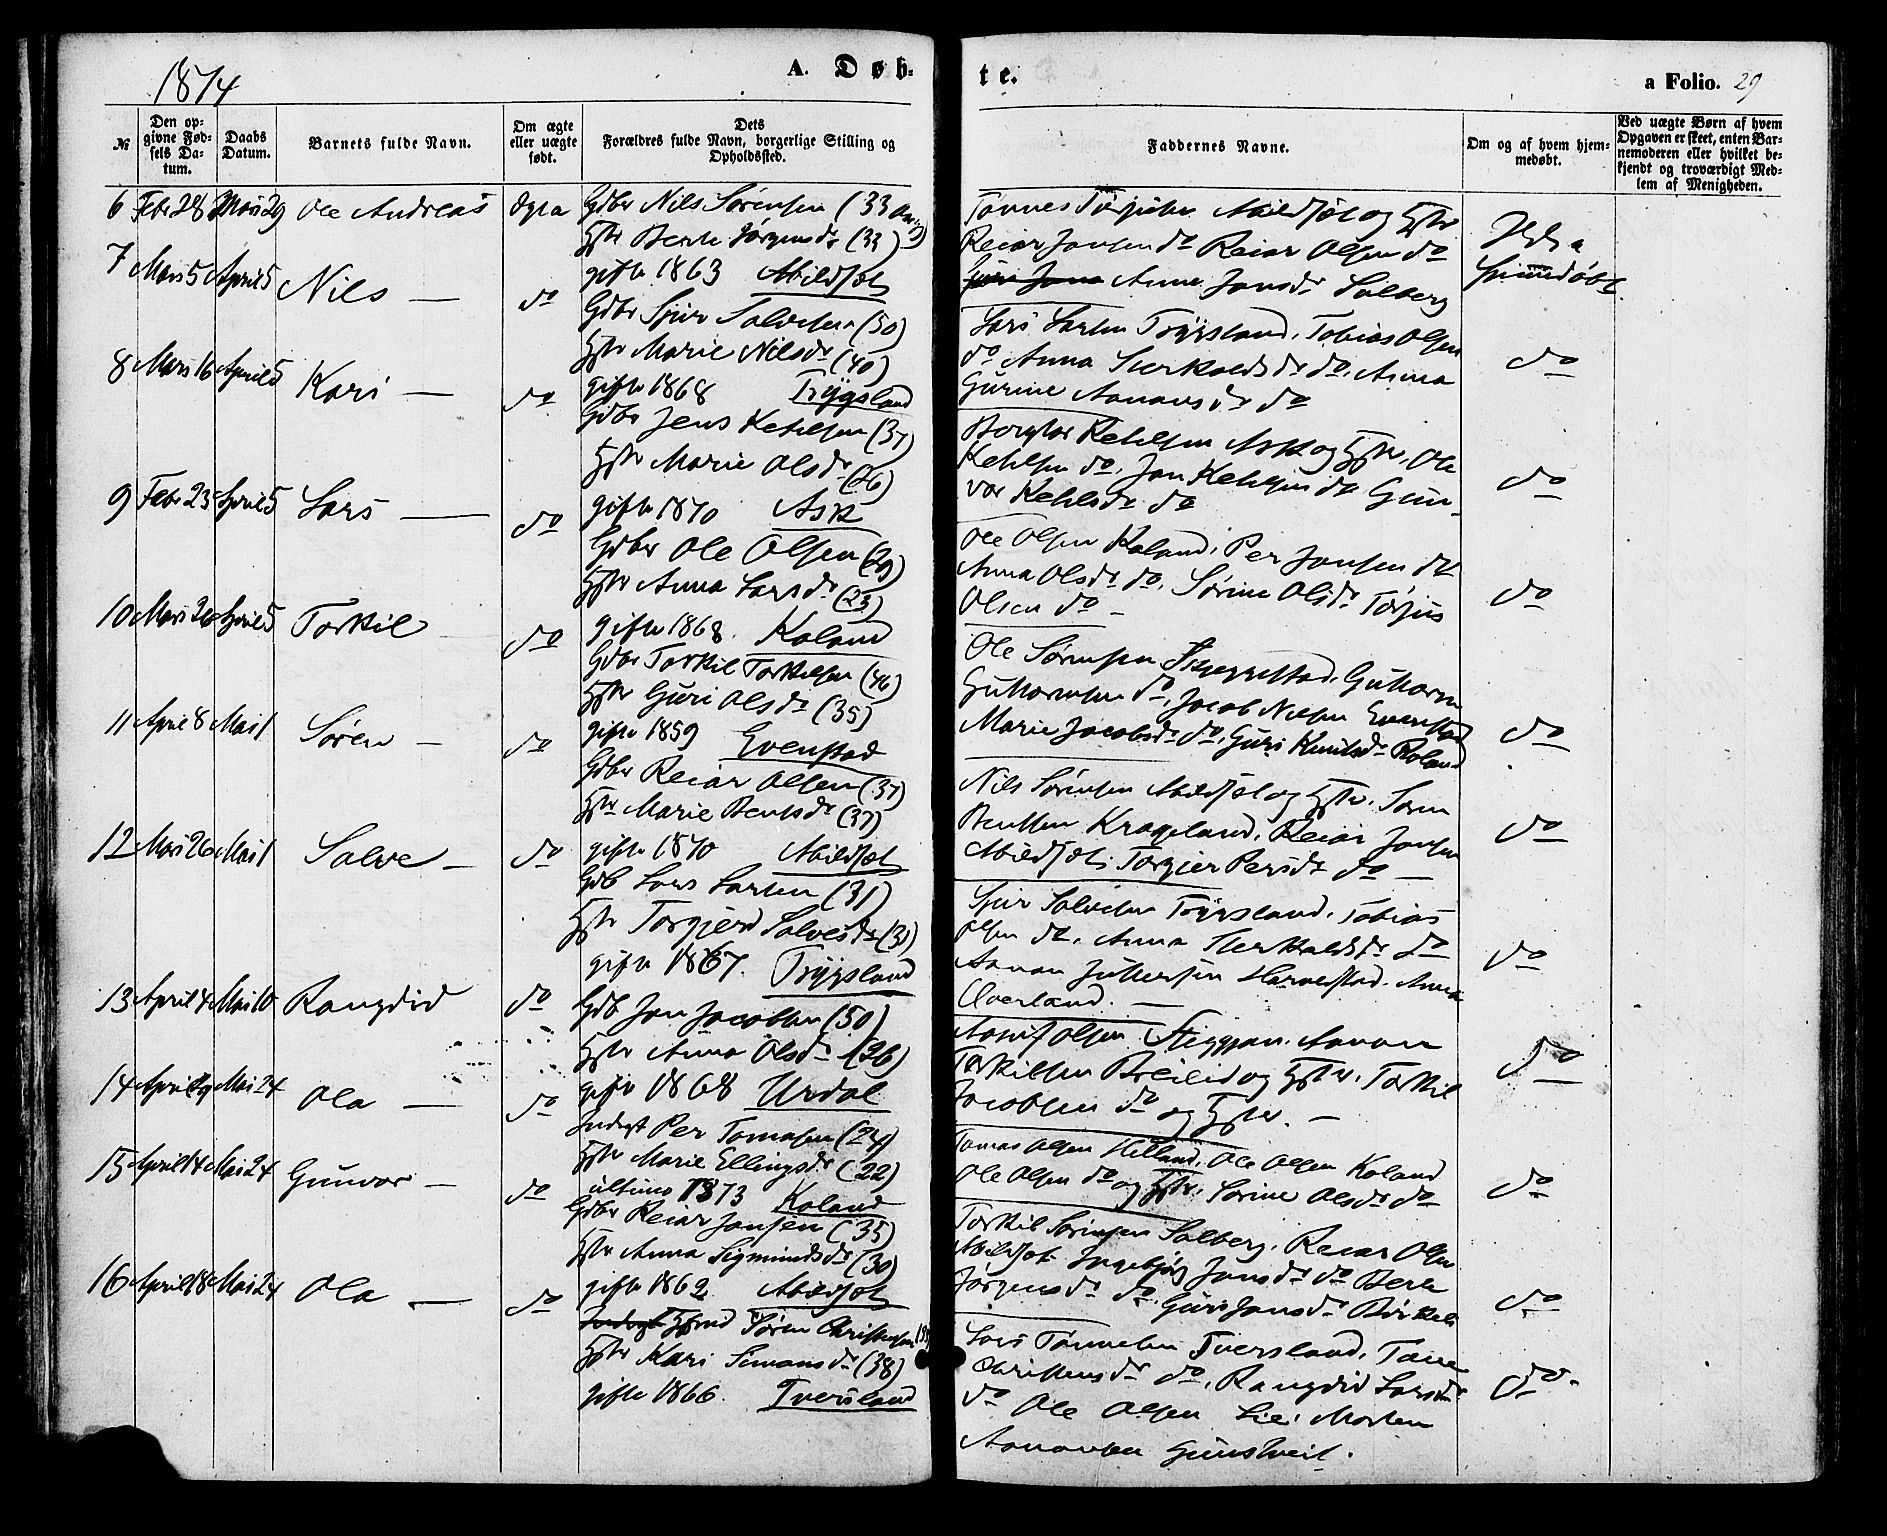 1874
A. Døb-
te.
a Folio. 29
№
Den op-
givne Fød-
sels Da-
tum.
Daabs
Datum.
Barnets fulde Navn.
Om ægte
eller uægte
født.
Dets
Forældres fulde Navn, borgerlige Stilling og
Opholdssted.
Faddernes Navne.
Om og af hvem hjem-
medøbt.
Ved uægte Børn af hvem
Opgaven er skeet, enten Bar-
nemoderen eller hvilket be-
kjendt og troværdigt Med-
lem af Menigheden.
6 Febr 28 Mars 29 Ole Andreas Ægte
Gdbr Nils Sørensen (33
Hstr Berte Jørgensdr (33)
gifte 1863 Abildsøl
Reiar Jansen do Reiar Olsen do
Anne Jansdr Solberg
7 Mars 5 April 5 Nils — do
Gdbr Sjur Salvesen (50)
Hstr Marie Nilsdr (40)
gifte 1868 Trygsland
Lars Larsen Trygsland, Tobias Olsen
do, Anna Terkaldsdr do, Anna
Gurine Aanonsdr do
do
8 Mars 16 April 5 Kari — do
Gdbr Jens Ketelsen (37)
Hstr Marie Olsdr (26)
gifte 1870 Ask
Ketelsen do, Jon Ketelsen do Gun-
vor Ketelsdr do
do
9 Febr 23 April 5 Lars — do
Gdbr Ole Olsen (29)
Hstr Anna Larsdr (23)
gifte 1868. Høland
Ole Olsen Høland, Per Jonsen do
Anna Olsdr do, Sørine Olsdr Tørjus
Olsen do —
do
10 Mars 26 April 5 Torkil do
Gdbr Torkil Torkilsen (46)
Hstr Guri Olsdr (35)
gifte 1859 Evenstad
Guttormsen do, Jacob Nilsen Evenstad
Marie Jacobsdr do, Guri Knutsdr Roland
do
11 April 8 Mai 1 Søren — do
Gdbr Reiar Olsen (37)
Hstr Marie Bentsdr (37)
gifte 1870 Abildsøl
Nils Sørensen Abildsøl og Hstr. Søren
Bentsen Krageland, Reiar Jansen
Abildsøl, Torgier Persdr do —
do
12 Mars 26 Mai 1 Salve — do
Gdb Lars Larsen (31)
Hstr Torgjerd Salvesdr (31)
gifte 1867. Trygsland
Sjur Salvesen Trygsland, Tobias
Olsen do, Anna Terkaldsdr do
Overland. —
do
13 April 4 Mai 10 Rangdid do
Gdb Jon Jacobsen (50)
Hstr Anna Olsdr (26)
gifte 1868 Urdal
Torkilsen Breilid og Hstr. Torkil
Jacobsen do og Hstr. —
do
14 April 29 Mai 24 Ola — do
Inderst Per Tomasen (24)
Hstr Marie Ellingsdr (22)
ultimo 1873 Høland
Tomas Olsen Helland, Ole Olsen Høland
Ole Olsen do og Hstr, Sørine Olsdr do
do
15 April 14 Mai 24 Gunvor — do
Gdbr Reiar Jansen (35)
Hstr Anna Sigmundsdr (30)
gifte 1862 Abildsøl
Torkil Sørensen Solberg, Reiar Olsen
Abildsøl Ingebjørg Jansdr do Berte
Jørgensdr do, Guri Jansdr Birkeli
do
16 April 18 Mai 24 Ola — do
Hsmd Søren Christensen
Hstr Kari Simonsdr (38)
gifte 1866. Tversland
Lars Tønnesen Tversland, Tone
Christensdr do, Rangdid Larsdr
do Ole Olsen Lie, Morten
Aanonsen
do